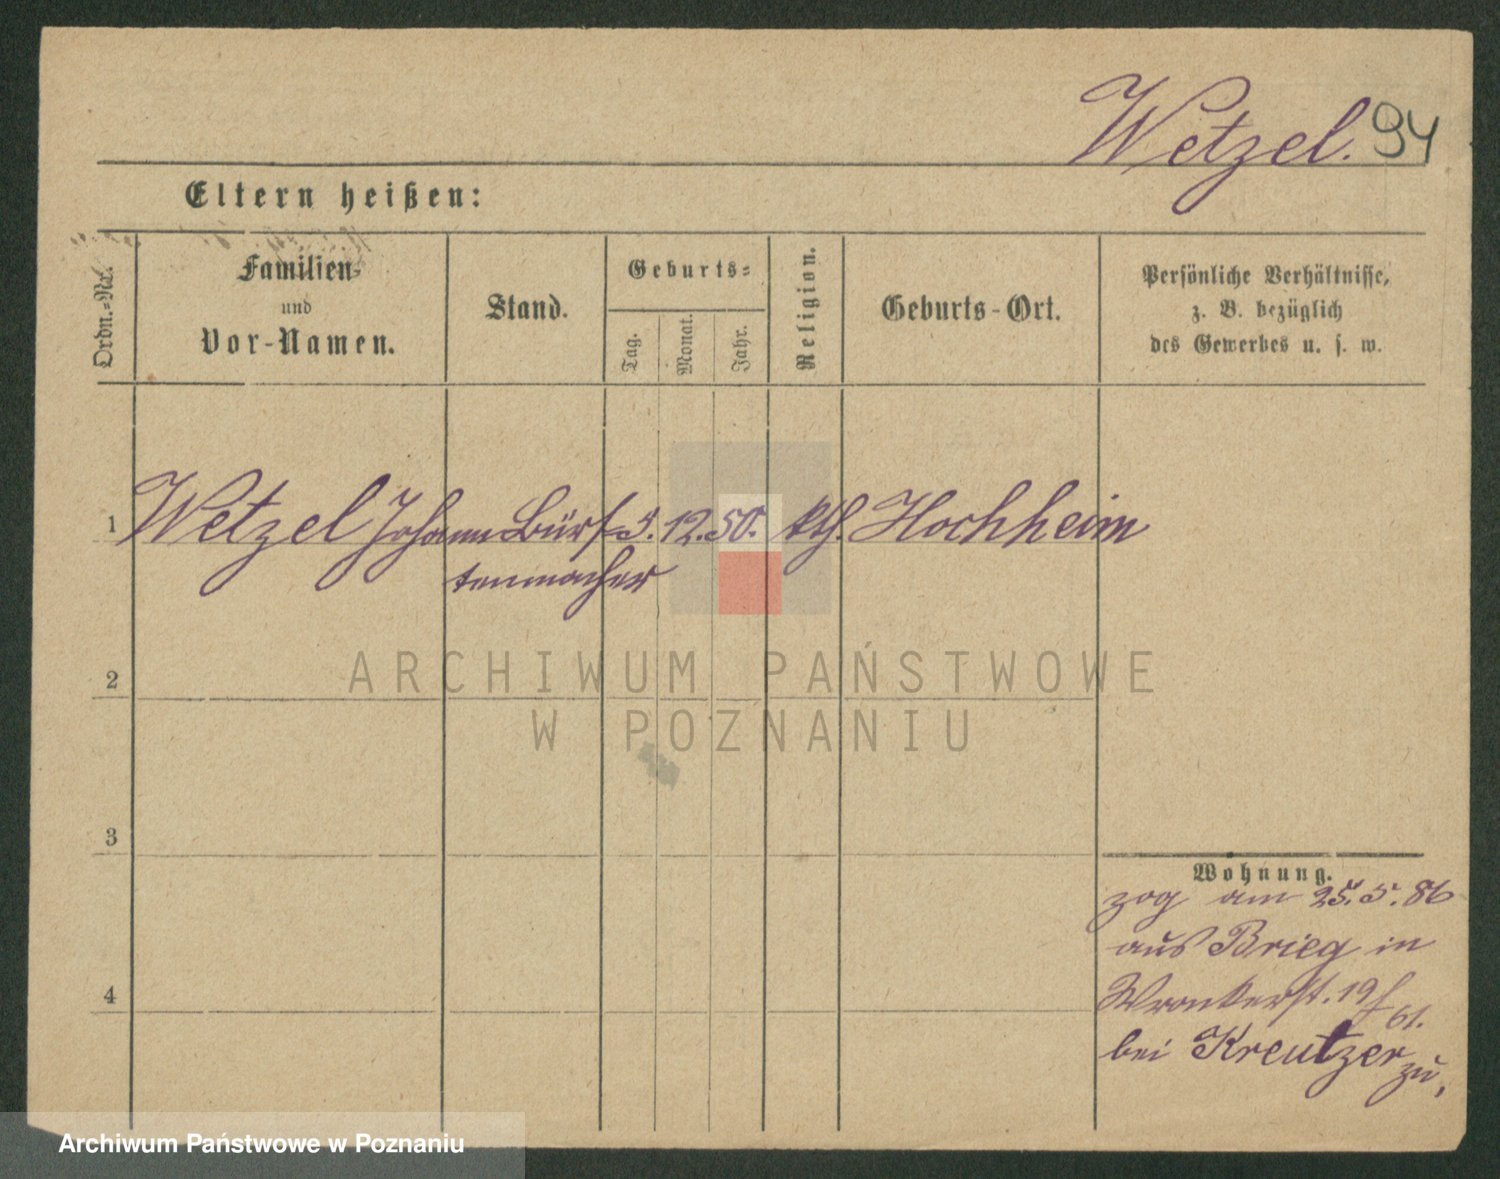 Wetzel. 94
Eltern heißen:
Ordn.-Nr.
Familien-
und
Vor-Namen.
Stand.
Geburts-
Tag.
Monat.
Jahr.
Religion.
Geburts-Ort.
Persönliche Verhältnisse,
z. B. bezüglich
des Gewerbes u. s. w.
1 Wetzel Johann Bürs- 5. 12. 50. kth. Hochheim
tenmacher
2
ARCHIWUM PAŃSTWOWE
W POZNANIU
3
Wohnung.
zog am 25.5.86
aus Brieg in
4
Wronkerst. 19
61.
bei Kreutzer zu,
Archiwum Państwowe w Poznaniu